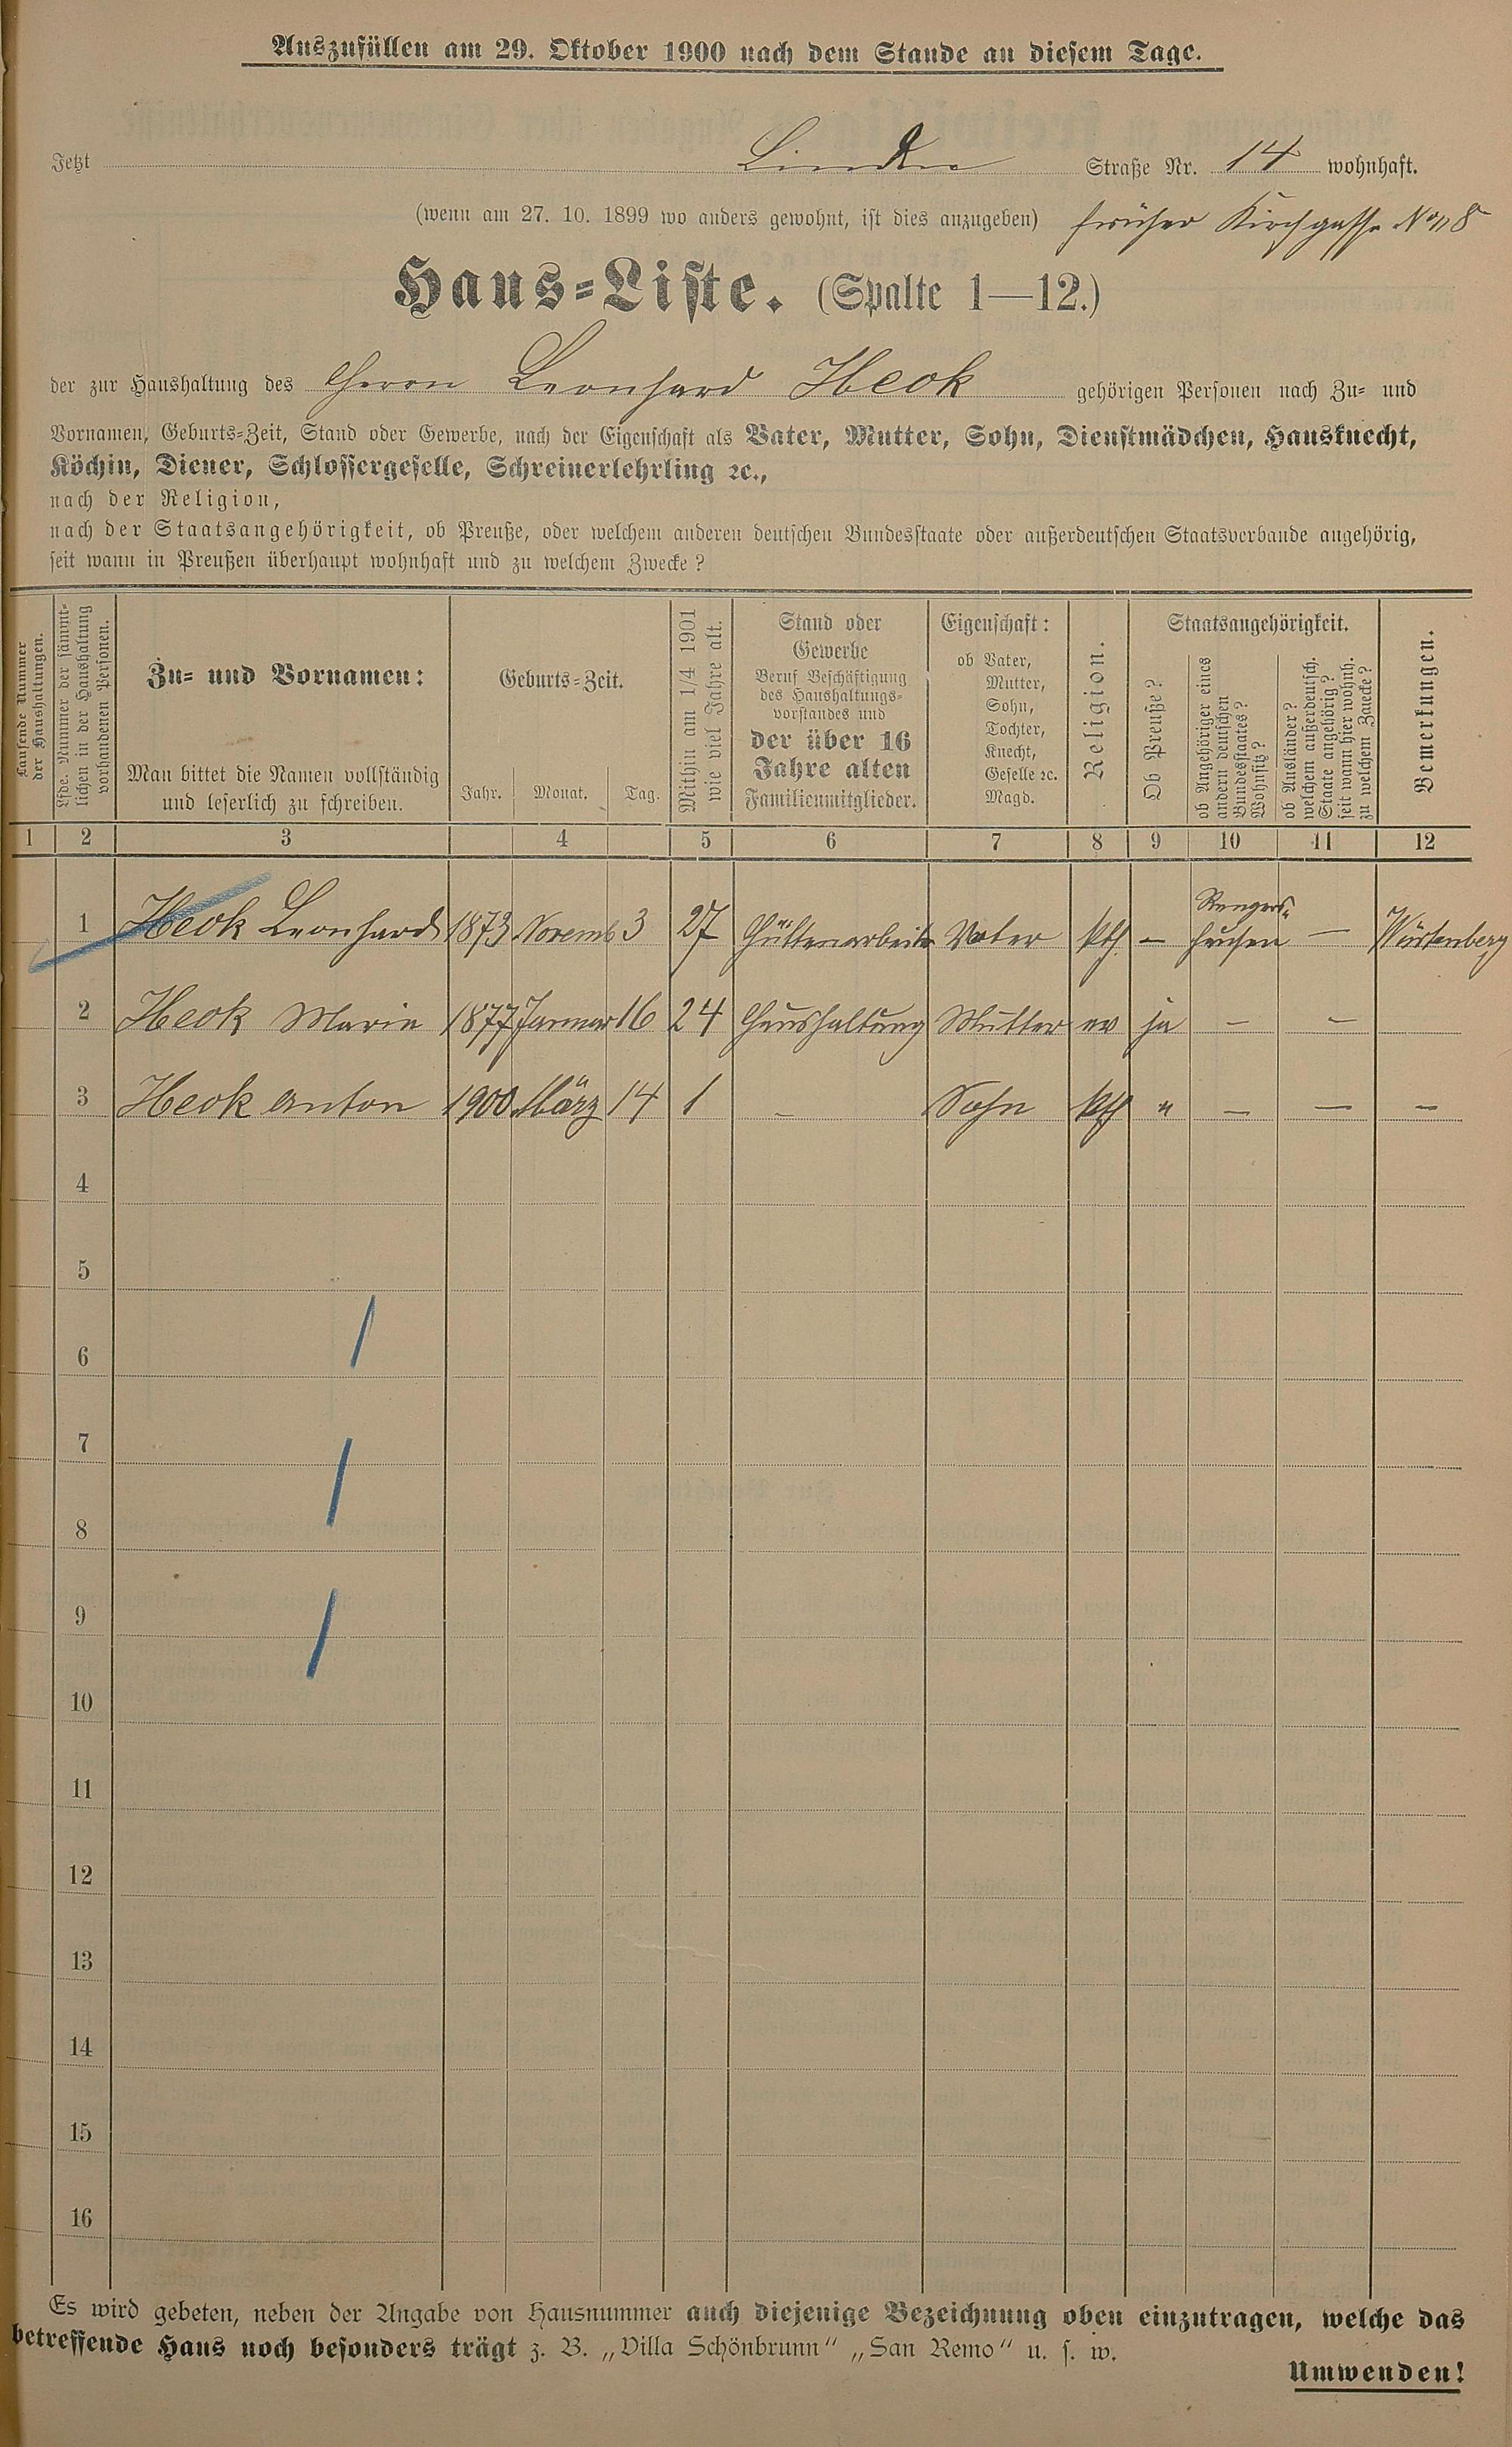 Auszufüllen am 29. Oktober 1900 nach dem Stande an diesem Tage.
Jetzt Linden Straße Nr. 14 wohnhaft.
(wenn am 27. 10. 1899 wo anders gewohnt, ist dies anzugeben) früher Kirchgasse No 8
Haus-Liste. (Spalte 1—12.)
der zur Haushaltung des Herrn Leonhard Heck gehörigen Personen nach Zu- und
Vornamen, Geburts-Zeit, Stand oder Gewerbe, nach der Eigenschaft als Vater, Mutter, Sohn, Dienstmädchen, Hausknecht,
Köchin, Diener, Schlossergeselle, Schreinerlehrling ꝛc.,
nach der Religion,
nach der Staatsangehörigkeit, ob Preuße, oder welchem anderen deutschen Bundesstaate oder außerdeutschen Staatsverbande angehörig,
seit wann in Preußen überhaupt wohnhaft und zu welchem Zwecke?
Laufende Nummer
der Haushaltungen.
Lfde. Nummer der sämmt-
lichen in der Haushaltung
vorhandenen Personen.
Zu- und Vornamen:
Man bittet die Namen vollständig
und leserlich zu schreiben.
Geburts-Zeit.
Jahr. Monat. Tag.
Mithin am 1/4 1901
wie viel Jahre alt.
Stand oder
Gewerbe
Beruf Beschäftigung
des Haushaltungs-
vorstandes und
der über 16
Jahre alten
Familienmitglieder.
Eigenschaft:
ob Vater,
Mutter,
Sohn,
Tochter,
Knecht,
Geselle ꝛc.
Magd.
Religion.
Staatsangehörigkeit.
Ob Preuße?
ob Angehöriger eines
andern deutschen
Bundesstaates?
Wohnsitz?
ob Ausländer?
welchem außerdeutsch.
Staate angehörig?
seit wann hier wohnh.
zu welchem Zwecke?
Bemerkungen.
1 2 3 4 5 6 7 8 9 10 11 12
1 Heck Leonhard 1873 Novemb 3 27 Hüttenarbeiter Vater kth. — — Würtenberg
2 Heck Marie 1877 Januar 16 24 Haushaltung Mutter ev ja — —
3 Heck Anton 1900 März 14 1 — Sohn kth " — — —
4
5
6
7
8
9
10
11
12
13
14
15
16
Es wird gebeten, neben der Angabe von Hausnummer auch diejenige Bezeichnung oben einzutragen, welche das
betreffende Haus noch besonders trägt z. B. „Villa Schönbrunn" „San Remo" u. s. w.
Umwenden!